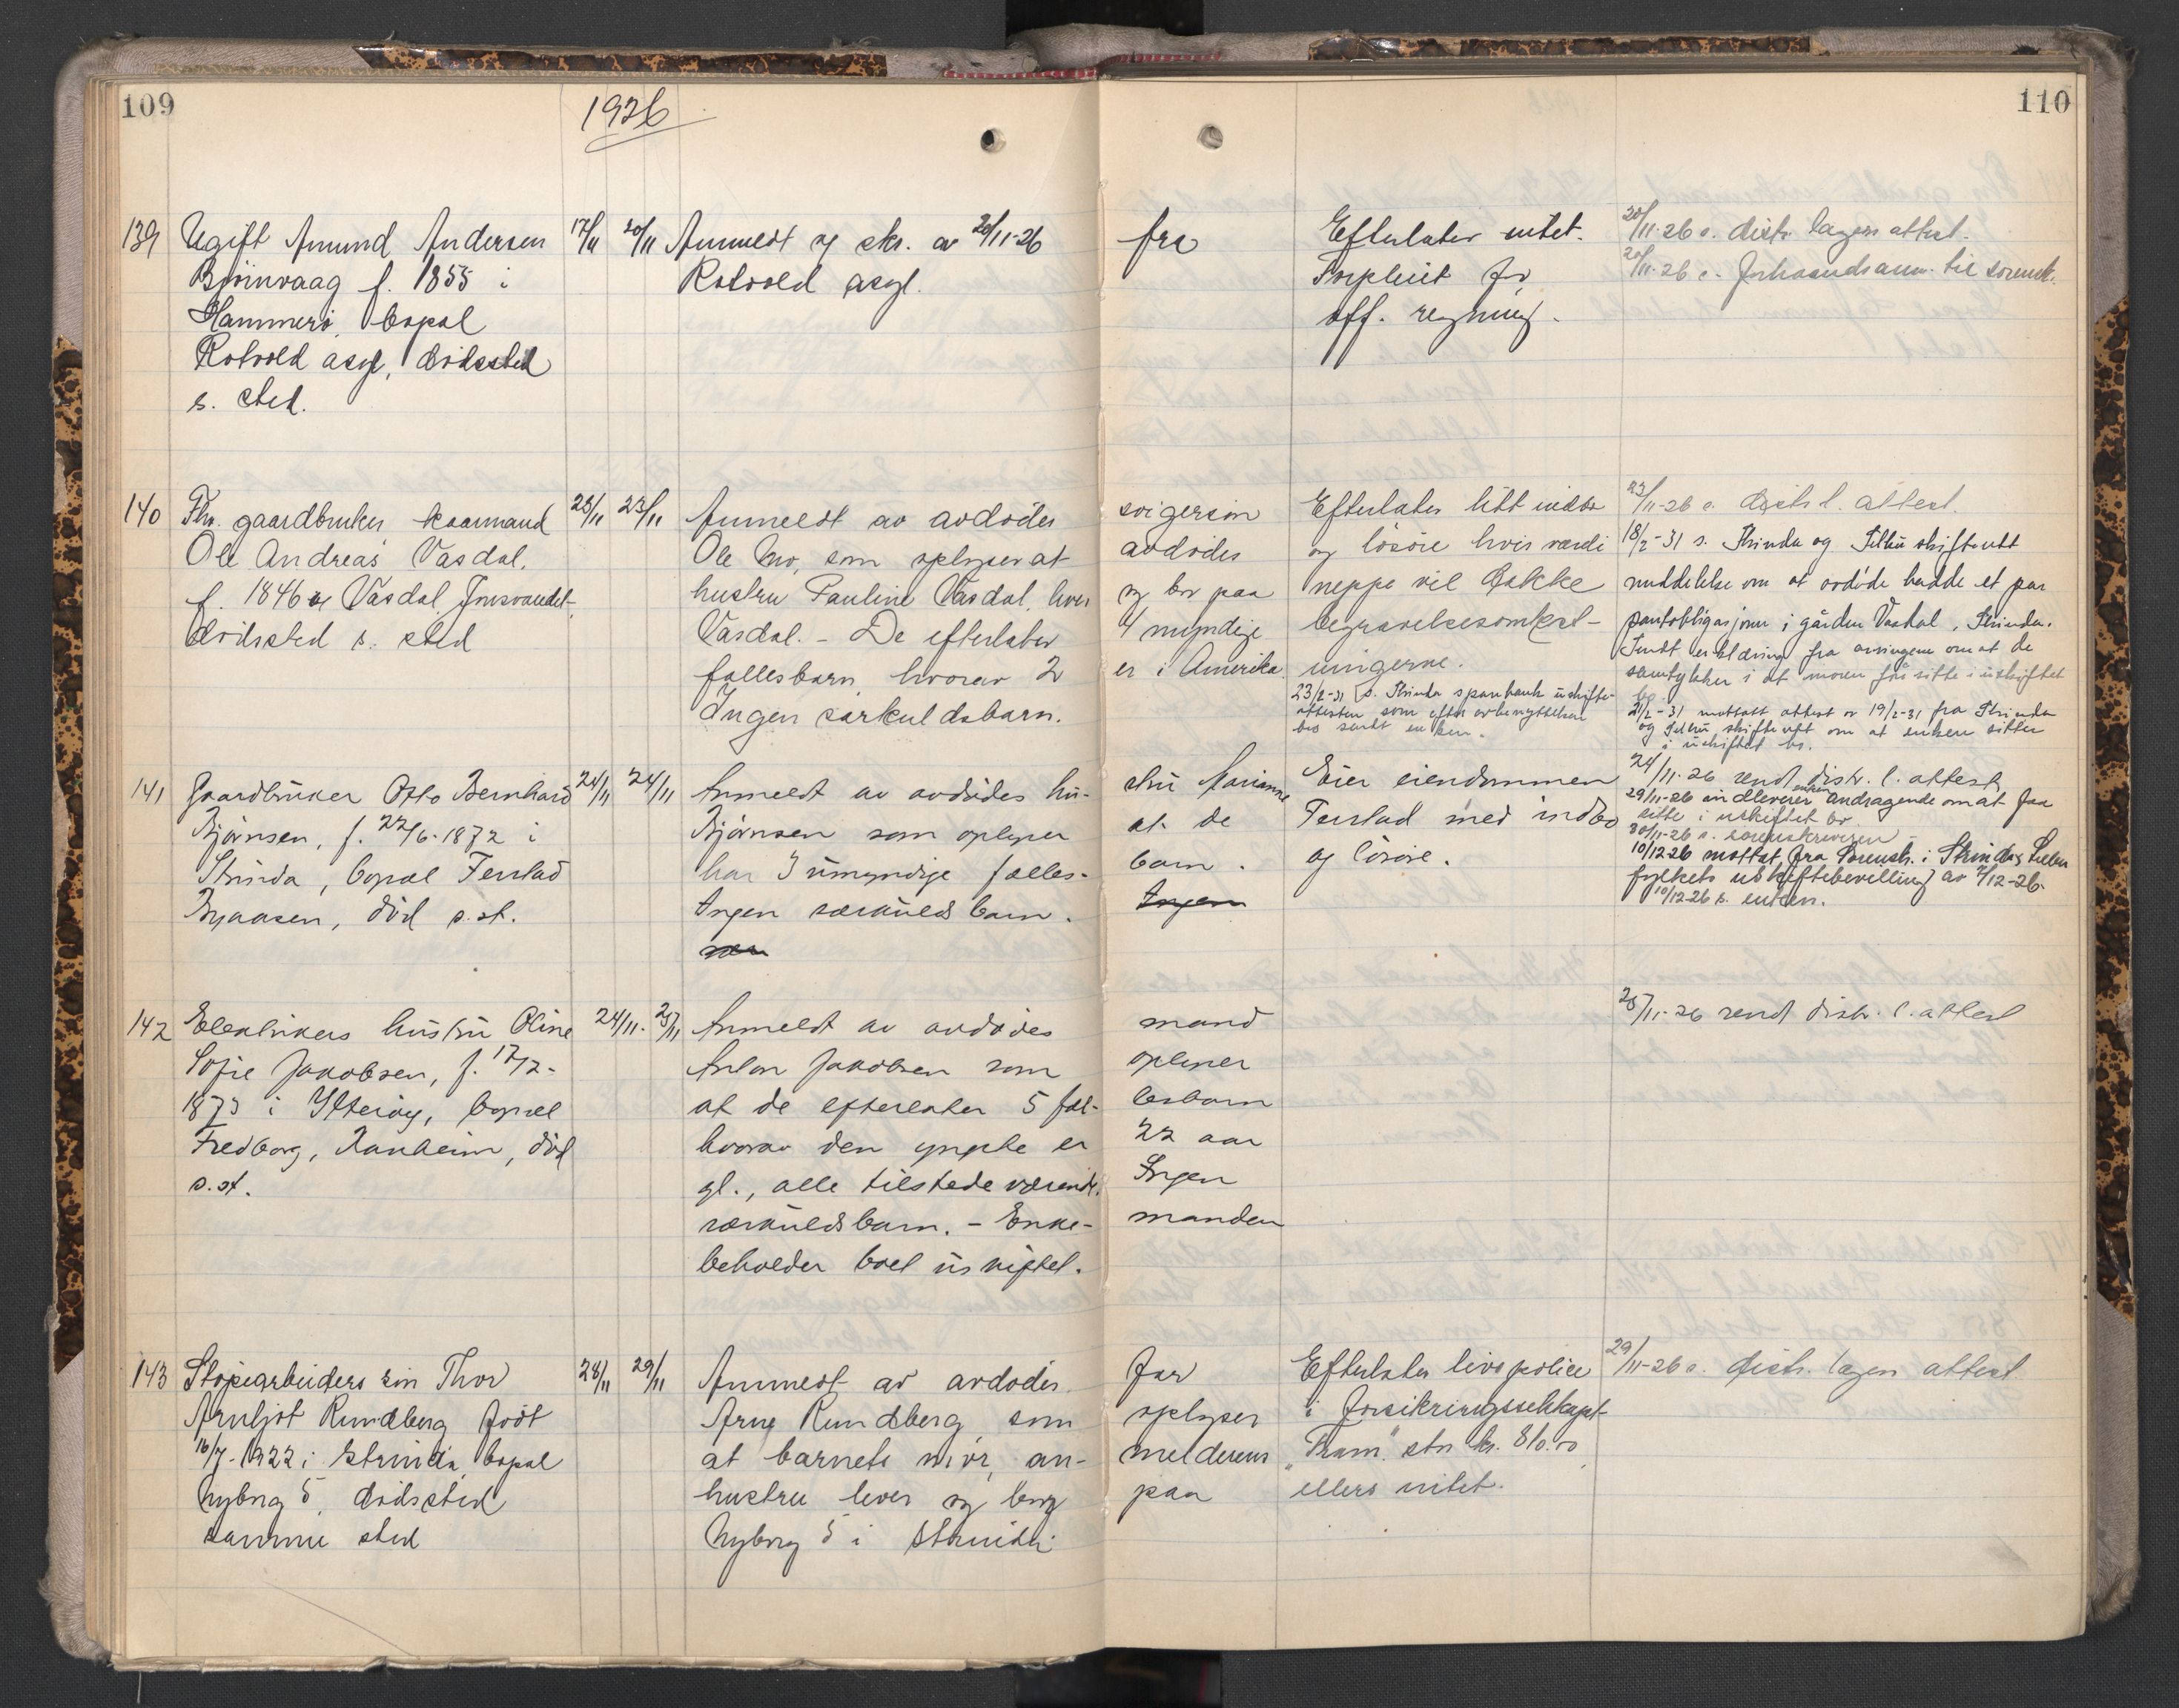 109
1926
110
139 Ugift Amund Andersen 17/11 20/11 Anmeldt og skr. av 20/11-26 fra Efterlater intet. 20/11-26 s. distr. lægens attest.
Bjørnvaag f. 1855 i Rotvold asyl. Forpleiet for 20/11-26 s. forhaandsanm. til sorensk.
Hammerø, bopæl off. regning.
Rotvold asyl, dødssted
s. sted.
140 Fhv. gaardbruker kaarmand 23/11 23/11 Anmeldt av avdødes svigersøn Efterlater litt indbo 23/11-26 s. distr. l. attest.
Ole Andreas Vasdal, Ole Mo, som oplyser at avdødes og løsøre hvis værdi 18/2-31 s. Strinda og Selbu skifterett
f. 1846 Vasdal, Jonsvandet, hustru Pauline Vasdal, lever og bor paa neppe vil dække meddelelse om at avdøde hadde et par
dødssted s. sted Vasdal. - De efterlater 4 myndige begravelsesomkost- pantobligasjoner i gården Vasdal, Strinda.
fællesbarn, hvorav 2 er i Amerika. ningerne. Sendt erklæring fra arvingene om at de
Ingen særkuldsbarn. samtykker i at moren får sitte i uskiftet
23/2-31 s. Strinda sparebank uskifte- bo.
attesten som efter avbenyttelsen 21/2-31 mottatt attest av 19/2-31 fra Strinda
bes sendt enken. og Selbu skifterett om at enken sitter
i uskiftet bo.
141 Gaardbruker Otto Bernhard 24/11 24/11 Anmeldt av avdødes hu- stru Marianne Eier eiendommen 24/11-26 sendt distr. l. attest
Bjørnsen, f. 22/6-1872 i Bjørnsen som oplyser at de Ferstad med indbo 29/11-26 indleverer enken andragende om at faa
Strinda, bopæl Ferstad har 3 umyndige fælles- barn. og løsøre. sitte i uskiftet bo.
Byaasen, død s.st. Ingen særkuldsbarn. Ingen 30/11-26 s. sorenskriveren
10/12-26 mottat fra Sorensk. i Strinda og Selbu
fylkets uskiftebevilling av 7/12-26.
10/12-26 s. enken.
142 Elektrikers hustru Oline 24/11. 25/11 Anmeldt av avdødes mand 25/11-26 sendt distr. l. attest
Sofie Jakobsen, f. 17/2- Anton Jakobsen som oplyser
1873 i Ytterøy, bopæl at de efterlater 5 fæl- lesbarn
Fredborg, Ranheim, død hvorav den yngste er 22 aar
s.st. gl., alle tilstedeværende. Ingen
særkuldsbarn. - Enke- manden
beholder boet uskiftet.
143 Støperiarbeiders søn Thor 28/11 29/11 Anmeldt av avdødes far Efterlater livspolice 29/11-26 s. distr. lægen attest.
Arnljot Rundberg født Arne Rundberg, som oplyser i forsikringsselskapet
16/7-1922 i Strinda, bopæl at barnets mor, an- melderens "Fram" stor kr. 810.00
Nyborg 5, dødssted hustru lever og bor paa ellers intet.
samme sted Nyborg 5 i Strinda